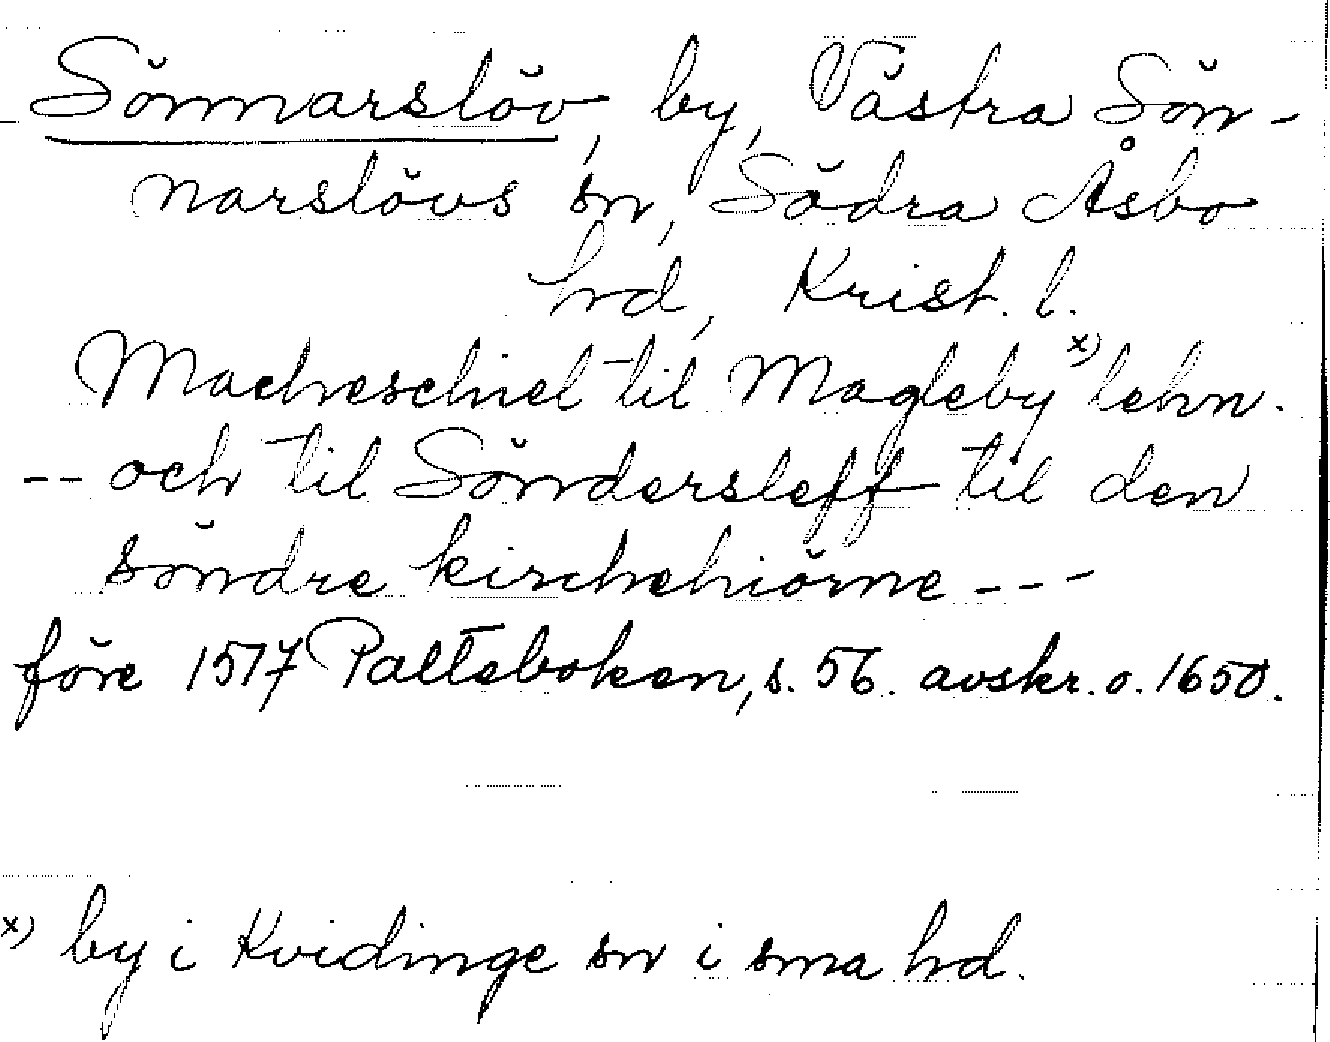 Sönnarslöv, by, Västra Sön-
narslövs sn, Södra Åsbo
hrd, Krist. l.
Macheschiel til Magleby x) lehn.
-- och til Söndersleff til den
söndre kirchehiörne ---
före 1517 Palteboken, s. 56. avskr. o. 1650.
x) by i Kvidinge sn i sma hrd.